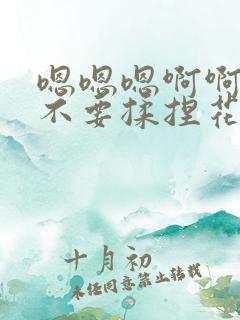 嗯嗯嗯啊啊
不要揉捏花
十月初
未经同意禁止转载